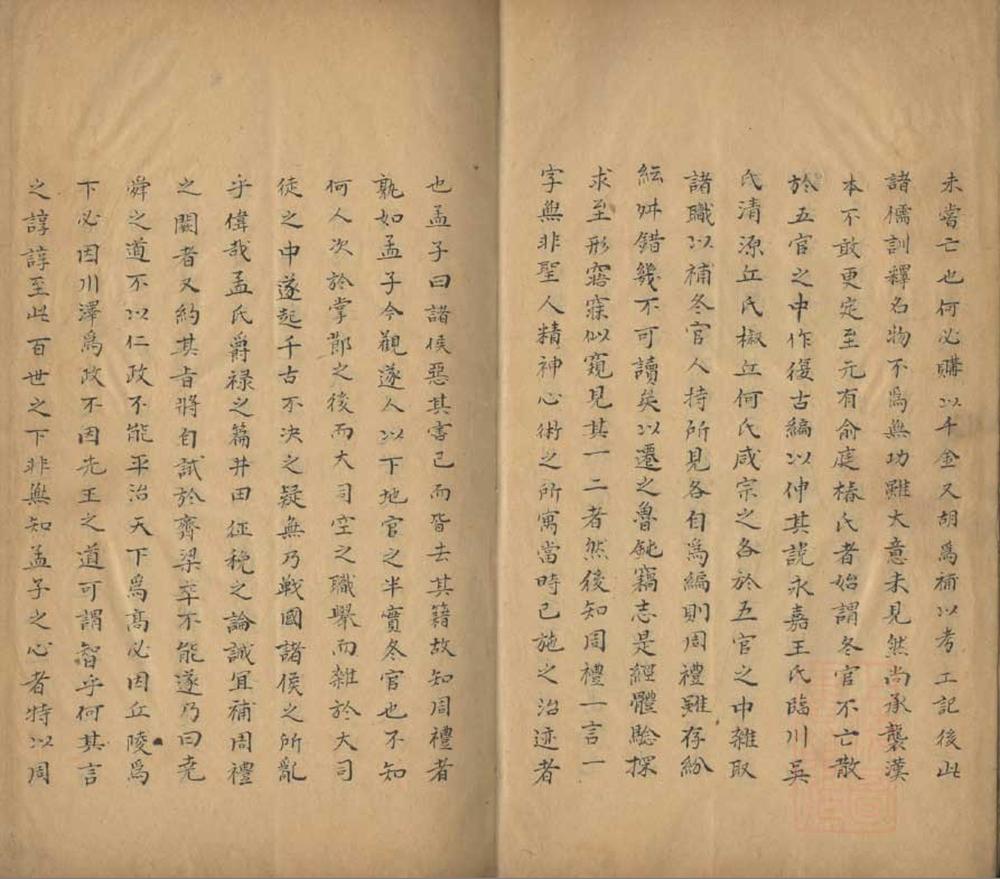 未嘗亡也何必購以千金又胡爲補以考工記後此
諸儒訓釋名物不爲無功雖大意未見然尚承襲漢
本不敢更定至元有俞庭椿氏者始謂冬官不亡散
於五官之中作復古編以伸其說永嘉王氏臨川吳
氏清源丘氏椒丘何氏咸宗之各於五官之中雜取
諸職以補冬官人持所見各自爲編則周禮雖存紛
紜舛錯幾不可讀矣以遷之魯鈍竊志是經體驗探
求至形窹寐似窺見其一二者然後知周禮一言一
字無非聖人精神心術之所寓當時已施之治迹者
也孟子曰諸侯惡其害己而皆去其籍故知周禮者
孰如孟子今觀遂人以下地官之半實冬官也不知
何人次於掌鄙之後而大司空之職舉而雜於大司
徒之中遂起千古不決之疑無乃戰國諸侯之所亂
乎偉哉孟氏爵祿之篇井田征稅之論誠宜補周禮
之闕者又約其旨將自試於齊梁卒不能遂乃曰堯
舜之道不以仁政不能平治天下爲高必因丘陵爲
下必因川澤爲政不因先王之道可謂智乎何其言
之諄諄至此百世之下非無知孟子之心者特以周